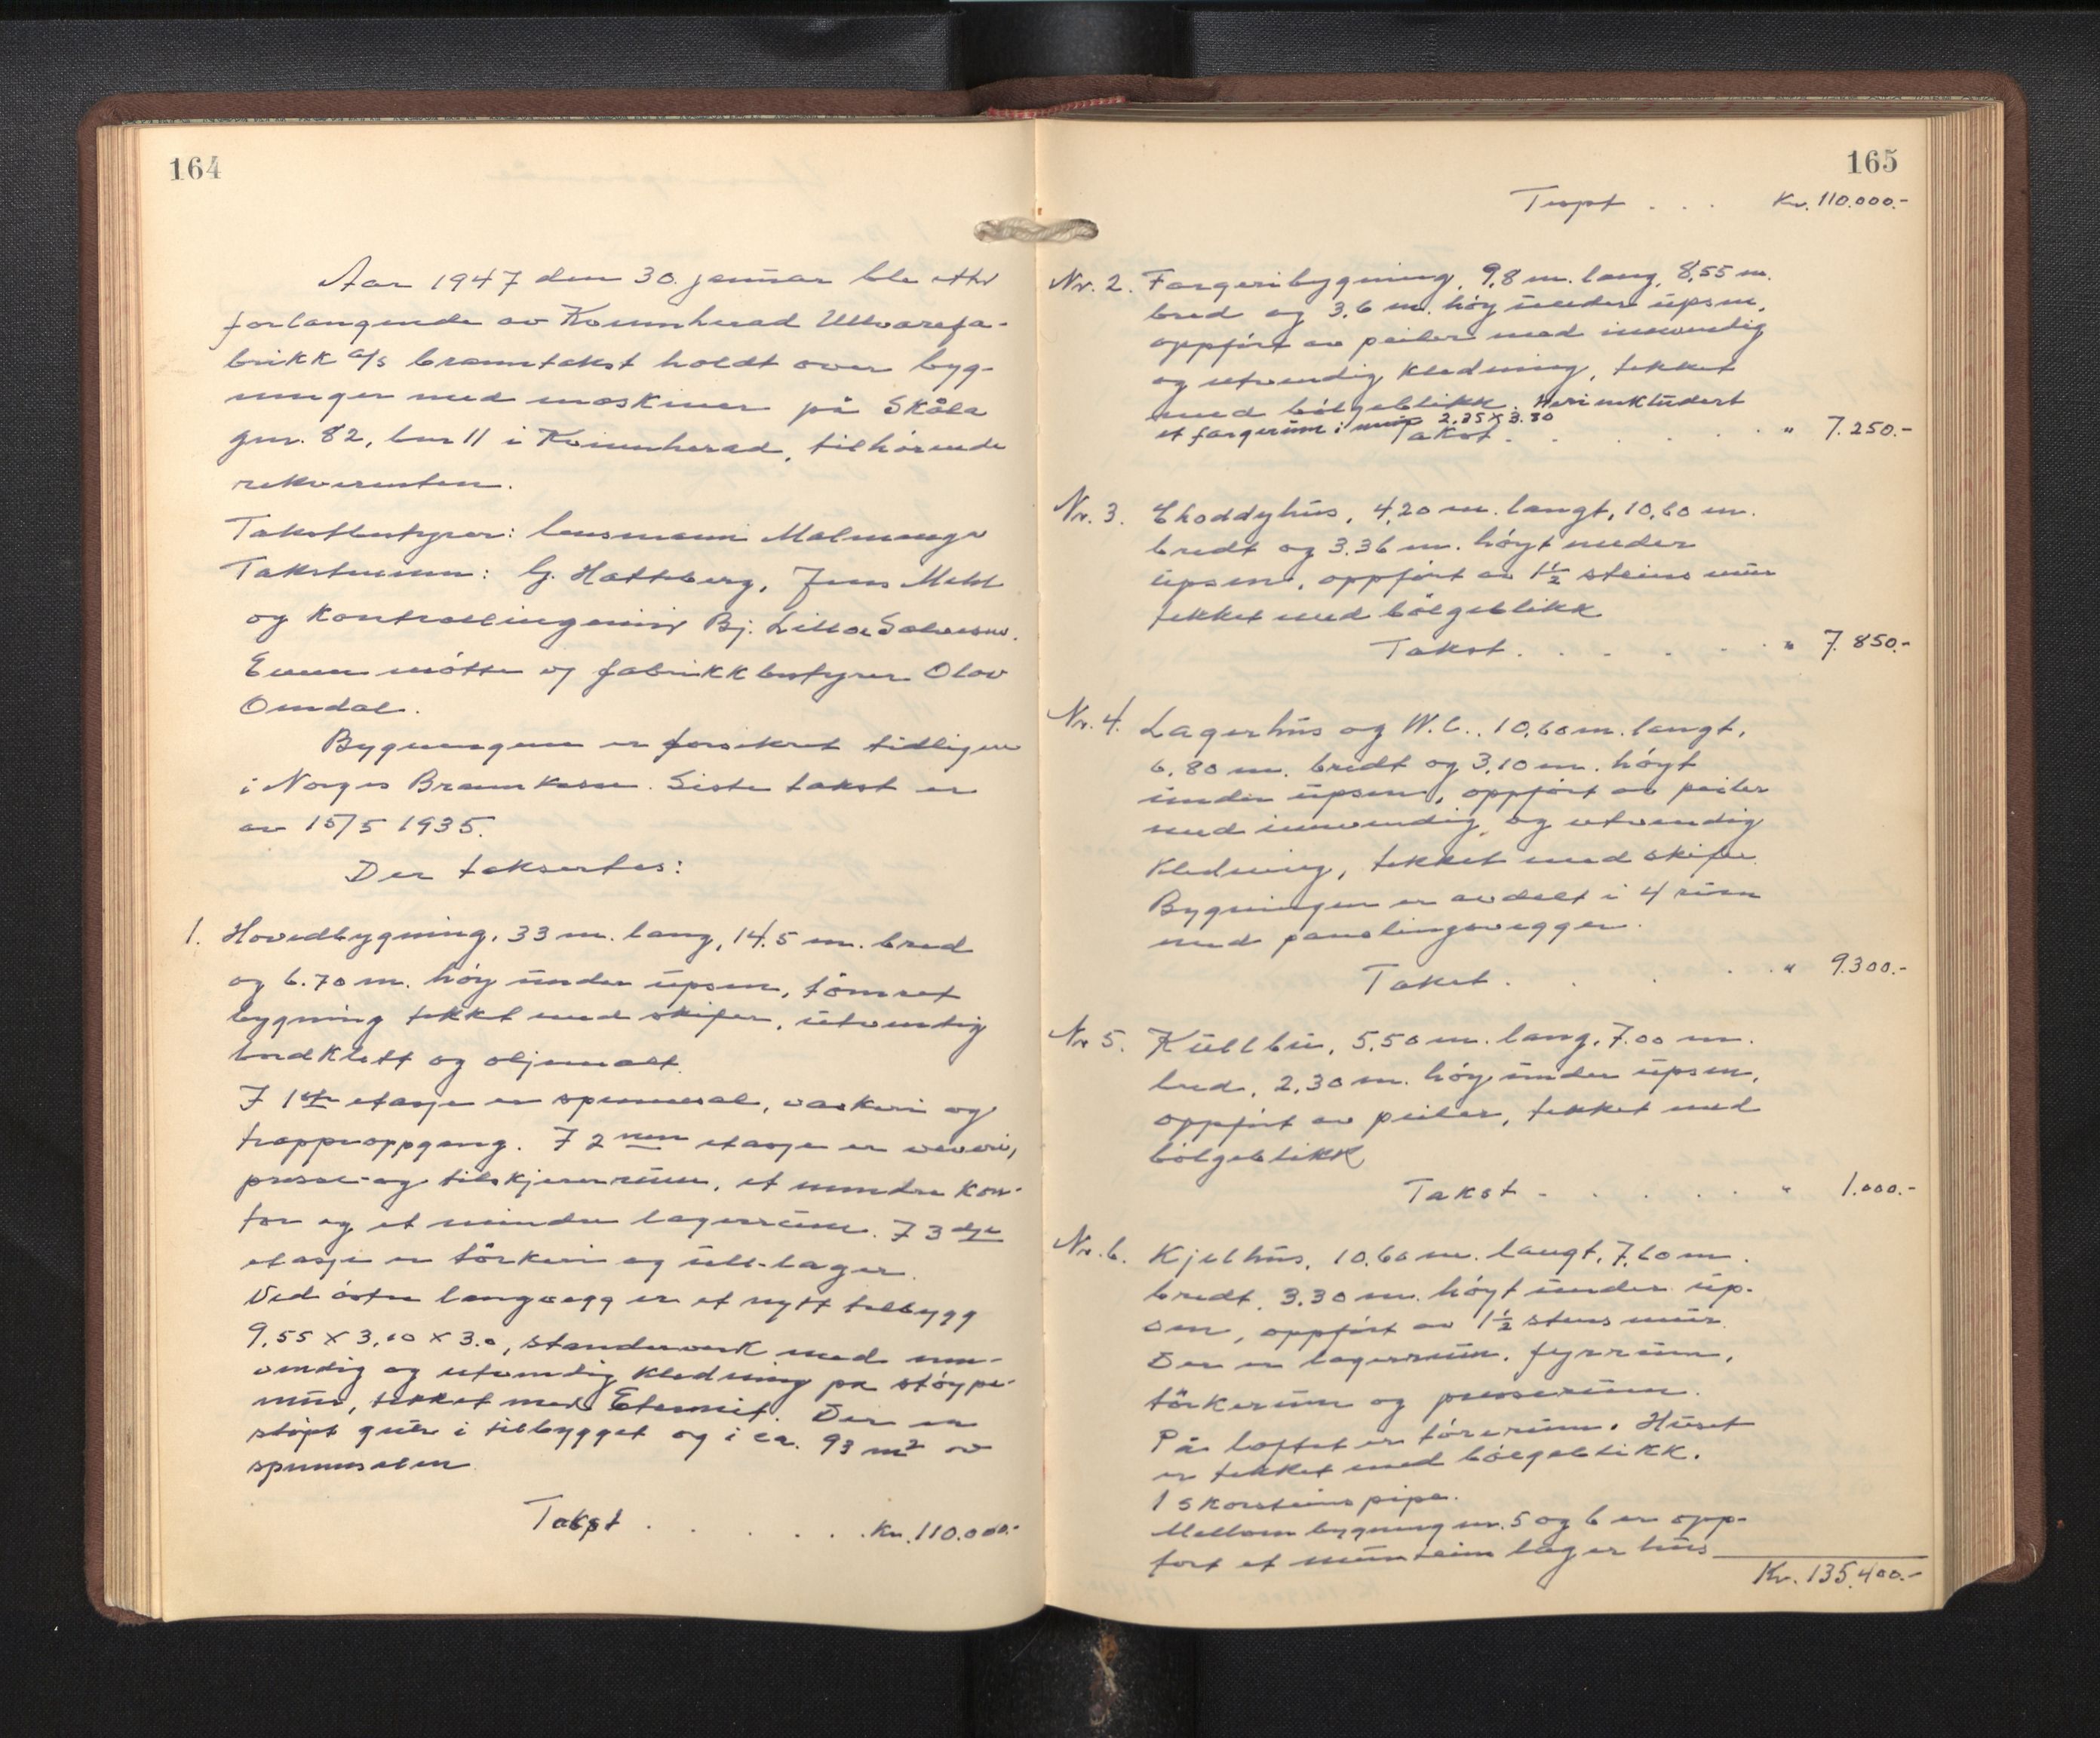 164
Aar 1947 den 30. januar ble etter
forlangende av Kvinnherad Ullvarefa-
brikk a/s branntakst holdt over byg-
ninger med maskiner på Skåla
gnr. 82, bnr 11 i Kvinnherad, tilhørende
rekvirenten.
Takstbestyrer: lensmann Malmanger
Takstmenn: G. Hatteberg, Jens Mehl
og kontrollingeniør Bj. Lilloe Salvesen.
Ennu møtte og fabrikkbestyrer Olav
Omdal.
Bygningene er forsikret tidligere
i Norges Brannkasse. Siste takst er
av 15/5 1935.
Der taksertes:
1. Hovedbygning, 33 m. lang, 14.5 m. bred
og 6.70 m. høy under upsen, tømret
bygning tekket med skifer, utvendig
bordklett og oljemalt.
I 1ste etasje er spinnesal, vaskeri og
trappeoppgang. I 2nen etasje er veveri,
presse- og tilskjererrum, et mindre kon-
tor og et mindre lagerrum. I 3dje
etasje er tørkeri og ull-lager.
Ved østre langvegg er et nytt tilbygg
9.55 x 3.10 x 3.0, standerverk med inn-
vendig og utvendig kledning på støype-
mur, tekket med Eternit. Der er
støpt gulv i tilbygget og i ca. 93 m² av
spinnesalen
Takst . . . . . . Kr. 110.000.-
165
Trspt . . . Kr. 110.000.-
Nr. 2. Fargeribygning, 9,8 m. lang, 8,55 m.
bred og 3.6 m. høy under upsen,
oppført av peiler med innvendig
og utvendig kledning, tekket
med bølgeblikk. Heri inkludert
et fargerum i mur 2.25 x 3.30
Takst . . . . . . " 7.250.-
Nr. 3. Shoddyhus, 4,20 m. langt, 10,60 m.
bredt og 3.36 m. høyt under
upsen, oppført av 1½ steins mur
tekket med bølgeblikk
Takst . . . . . . " 7.850.-
Nr. 4. Lagerhus og W.C., 10,60 m. langt,
6,80 m. bredt og 3,10 m. høyt
under upsen, oppført av peiler
med innvendig og utvendig
kledning, tekket med skifer
Bygningen er avdelt i 4 rum
med panelingsvegger.
Takst . . . . . " 9.300.-
Nr 5. Kullbu, 5.50 m. lang, 7.00 m.
bred, 2,30 m. høy under upsen,
oppført av peiler, tekket med
bølgeblikk
Takst . . . . . . " 1.000.-
Nr. 6. Kjelhus, 10.60 m. langt, 7,60 m.
bredt, 3.30 m. høyt under up-
sen, oppført av 1½ stens mur.
Der er lagerrum, fyrrum,
tørkerum og presserum.
På loftet er tørerum. Huset
er tekket med bølgeblikk.
1 skorsteinspipe.
Mellom bygning nr. 5 og 6 er opp-
ført et lagerhus
Kr. 135.400.-